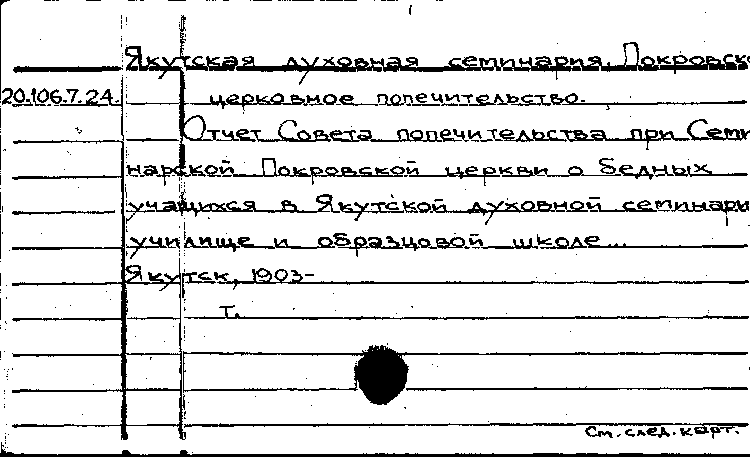 Якутская духовная семинария. Покровск
20.106.7.24. церковное попечительство.
Отчет Совета попечительства при Семи
нарской Покровской церкви о бедных
учащихся в Якутской духовной семинари
училище и образцовой школе...
Якутск, 1903-
т.
См. след. карт.